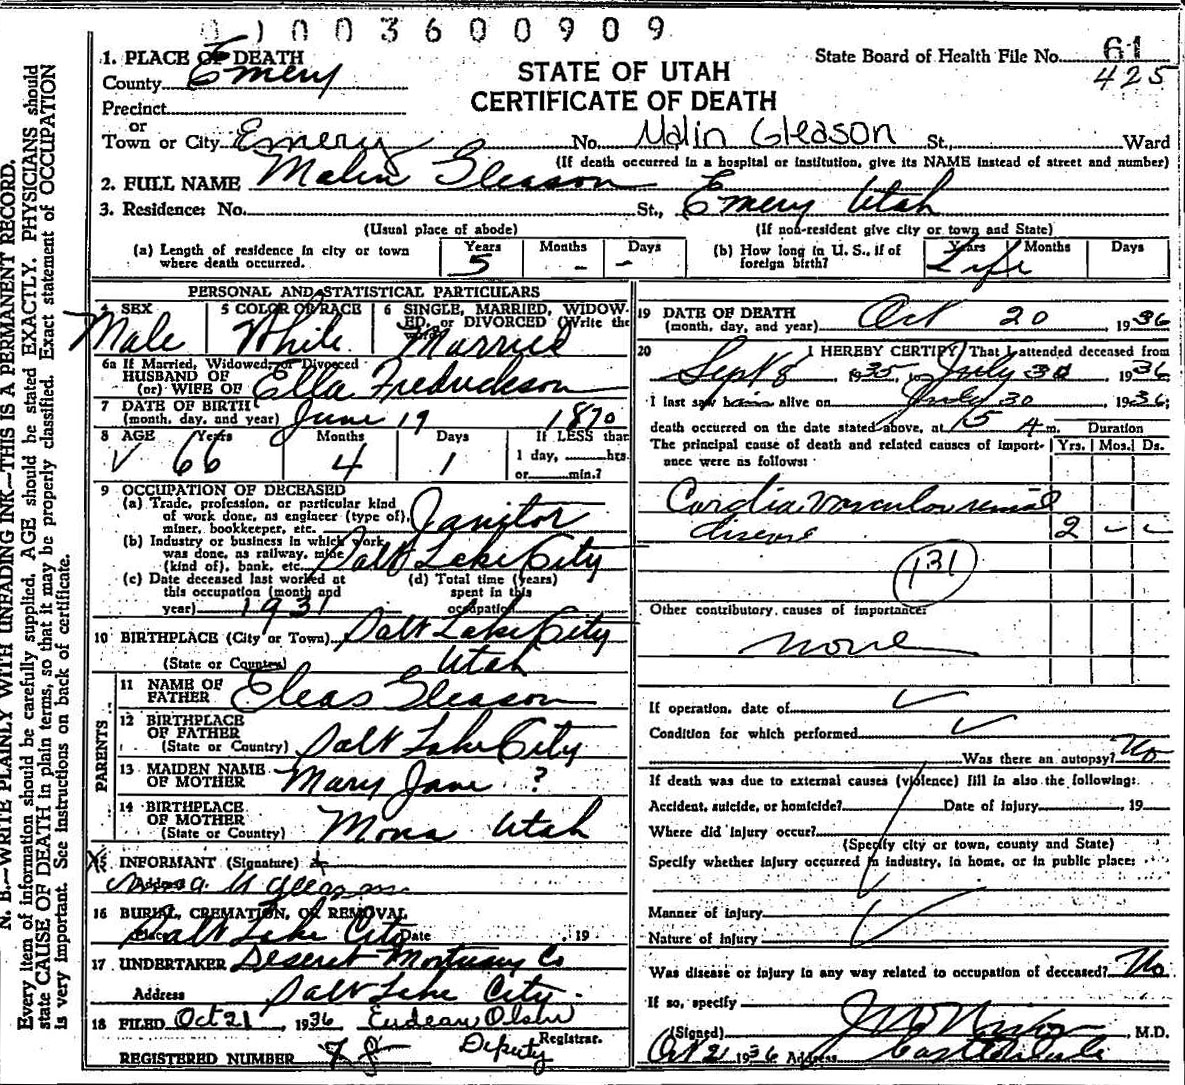 01003600909
1. PLACE OF DEATH
County Emery
State Board of Health File No. 61
425
STATE OF UTAH
CERTIFICATE OF DEATH
Precinct
or
Town or City Emery No. Malin Gleason St., Ward
(If death occurred in a hospital or institution, give its NAME instead of street and number)
2. FULL NAME Malin Gleason
3. Residence: No. St., Emery Utah
(Usual place of abode) (If non-resident give city or town and State)
(a) Length of residence in city or town where death occurred. Years 5 Months - Days -
(b) How long in U. S., if of foreign birth? Years Months Days Life
PERSONAL AND STATISTICAL PARTICULARS
4 SEX Male
5 COLOR OR RACE White
6 SINGLE, MARRIED, WIDOWED, or DIVORCED (Write the word) Married
6a If Married, Widowed, or Divorced
HUSBAND OF
(or) WIFE OF Ella Fredrickson
7 DATE OF BIRTH
(month, day, and year) June 19 1870
8 AGE Years 66 Months 4 Days 1
If LESS than
1 day, hrs.
or min.?
9 OCCUPATION OF DECEASED
(a) Trade, profession, or particular kind
of work done, as engineer (type of),
miner, bookkeeper, etc. Janitor
(b) Industry or business in which work
was done, as railway, mine
(kind of), bank, etc. Salt Lake City
(c) Date deceased last worked at
this occupation (month and
year) 1931
(d) Total time (years)
spent in this
occupation
10 BIRTHPLACE (City or Town) Salt Lake City
(State or Country) Utah
PARENTS
11 NAME OF
FATHER Eleas Gleason
12 BIRTHPLACE
OF FATHER
(State or Country) Salt Lake City
13 MAIDEN NAME
OF MOTHER Mary Jane ?
14 BIRTHPLACE
OF MOTHER
(State or Country) Mona Utah
15 INFORMANT (Signature) x
Address Gleason
16 BURIAL, CREMATION, OR REMOVAL
Place Salt Lake City Date , 19
17 UNDERTAKER Deseret Mortuary Co
Address Salt Lake City
18 FILED Oct 21, 1936 Eudean Olsen
Deputy Registrar.
REGISTERED NUMBER 78
19 DATE OF DEATH
(month, day, and year) Oct 20, 1936
20 I HEREBY CERTIFY, That I attended deceased from
Sept 8 1935, to July 30 1936
I last saw him alive on July 30 1936;
death occurred on the date stated above, at 15 A m.
Duration
The principal cause of death and related causes of importance were as follows: Yrs. Mos. Ds.
Cardia vascular renial
disease 2 - -
131
Other contributory causes of importance:
none
If operation, date of
Condition for which performed
Was there an autopsy? No
If death was due to external causes (violence) fill in also the following:
Accident, suicide, or homicide? Date of injury , 19
Where did injury occur?
(Specify city or town, county and State)
Specify whether injury occurred in industry, in home, or in public place:
Manner of injury
Nature of injury
Was disease or injury in any way related to occupation of deceased? No
If so, specify
(Signed) , M.D.
Oct 21 1936 Address Castle Dale
N. B.—WRITE PLAINLY WITH UNFADING INK—THIS IS A PERMANENT RECORD.
Every item of information should be carefully supplied. AGE should be stated EXACTLY. PHYSICIANS should
state CAUSE OF DEATH in plain terms, so that it may be properly classified. Exact statement of OCCUPATION
is very important. See instructions on back of certificate.